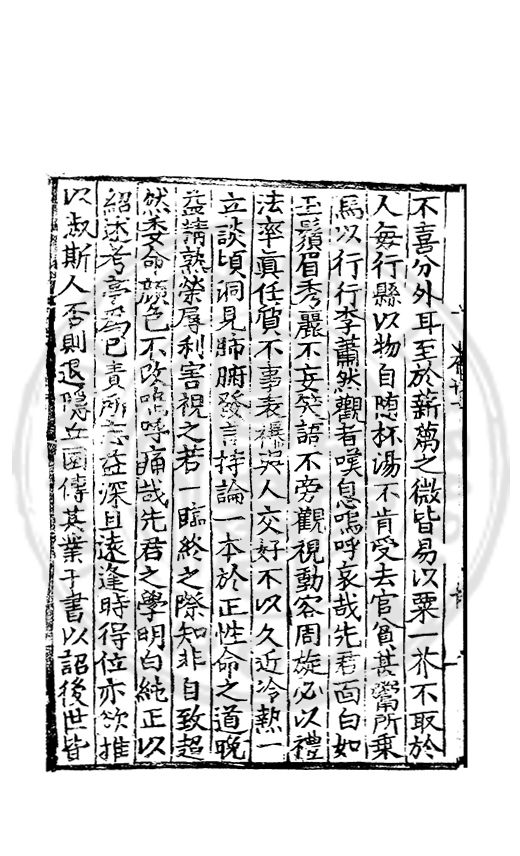 不喜分外耳至於薪蒭之微皆易以粟一芥不取於
人每行縣以物自随杯湯不肯受去官貧甚鬻所乗
馬以行行李蕭然觀者嘆息嗚呼哀哉先君面白如
玉鬚眉秀麗不妄笑語不旁觀視動容周旋必以禮
法率眞任質不事表襮與人交好不以久近冷熱一
立談頃洞見肺腑發言持論一本於正性命之道晚
益精熟榮辱利害視之若一臨終之際知非自致超
然委命顔色不改嗚呼痛哉先君之學明白純正以
紹述考亭爲已責所志益深且遠逢時得位亦欲推
以淑斯人否則退隱丘園傳其業于書以詔後世皆